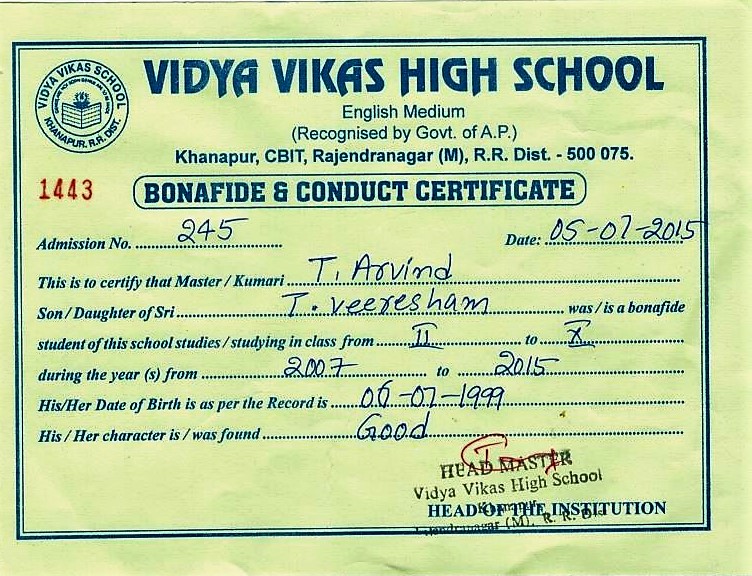 VIDYA VIKAS SCHOOL
KHANAPUR. R.R. DIST.
VIDYA VIKAS HIGH SCHOOL
English Medium
(Recognised by Govt. of A.P.)
Khanapur, CBIT, Rajendranagar (M), R.R. Dist. - 500 075.
1443
BONAFIDE & CONDUCT CERTIFICATE
Admission No. 245 Date: 05-07-2015
This is to certify that Master / Kumari T. Arvind
Son / Daughter of Sri T. veeresham was / is a bonafide
student of this school studies / studying in class from II to X
during the year (s) from 2007 to 2015
His/Her Date of Birth is as per the Record is 06-07-1999
His / Her character is / was found Good
HEAD MASTER
Vidya Vikas High School
Khanapur,
HEAD OF THE INSTITUTION
Rajendranagar (M), R. R. Dist